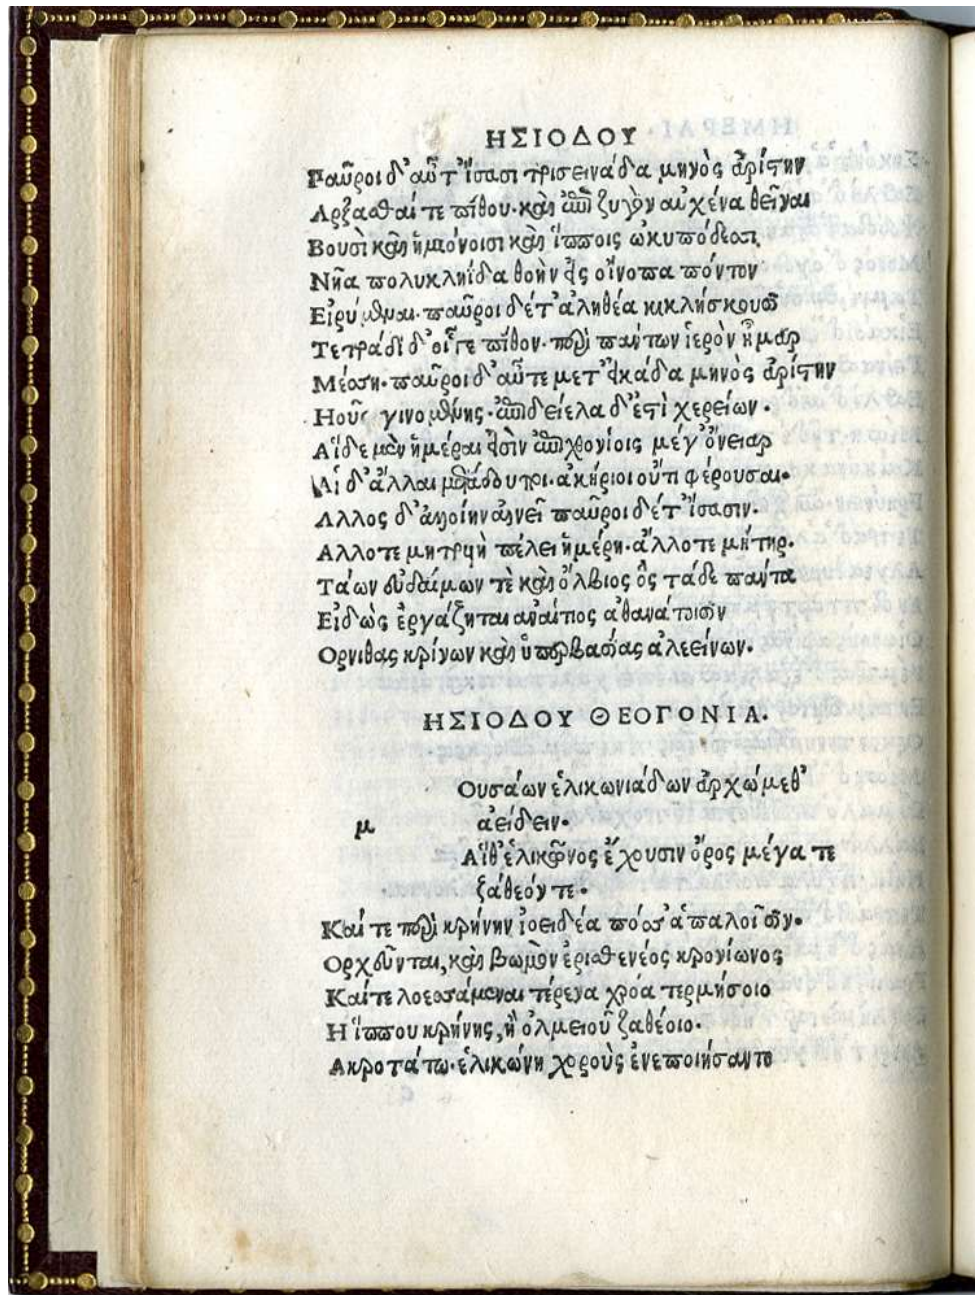 ΗΣΙΟΔΟΥ
Ραῦροι δ' αὖτ' ἴσασι τρισεινάδα μηνὸς ἀρίστην
Αρξασθαί τε πίθου· καὶ ἐπὶ ζυγὸν αὐχένα θεῖναι
Βουσὶ καὶ ἡμιόνοισι καὶ ἵπποις ὠκυπόδεσσι
Νῆα πολυκληίδα θοὴν εἰς οἴνοπα πόντον
Εἰρύμεναι· παῦροι δέ τ' ἀληθέα κικλήσκουσι
Τετράδι δ' οἶγε πίθον· περὶ πάντων ἱερὸν ἦμαρ
Μέσση· παῦροι δ' αὖτε μετ' εἰκάδα μηνὸς ἀρίστην
Ηοῦς γινομένης· ἐπὶ δείελα δ' ἐστὶ χερείων·
Αἵδε μὲν ἡμέραι εἰσὶν ἐπιχθονίοις μέγ' ὄνειαρ
Αἱ δ' ἄλλαι μετάδουποι· ἀκήριοι οὔτι φέρουσαι·
Αλλος δ' ἀλλοίην αἰνεῖ παῦροι δέ τ' ἴσασιν·
Αλλοτε μητρυὴ πέλει ἡμέρη· ἄλλοτε μήτηρ·
Τάων εὐδαίμων τὲ καὶ ὄλβιος ὃς τάδε πάντα
Εἰδὼς ἐργάζηται ἀναίτιος ἀθανάτοισιν
Ορνιθας κρίνων καὶ ὑπερβασίας ἀλεείνων·
ΗΣΙΟΔΟΥ ΘΕΟΓΟΝΙΑ·
Ουσάων ἑλικωνιάδων ἀρχώμεθ'
μ ἀείδειν·
Αἵθ' ἑλικῶνος ἔχουσιν ὄρος μέγα τε
ζάθεόν τε·
Καί τε περὶ κρήνην ἰοειδέα πόσσ' ἁπαλοῖσιν·
Ορχεῦνται, καὶ βωμὸν ἐρισθενέος κρονίωνος
Καί τε λοεσσάμεναι τέρενα χρόα τερμήσοιο
Η ἵππου κρήνης, ἢ ὀλμειοῦ ζαθέοιο·
Ακροτάτῳ· ἑλικώνι χοροὺς ἐνεποιήσαντο